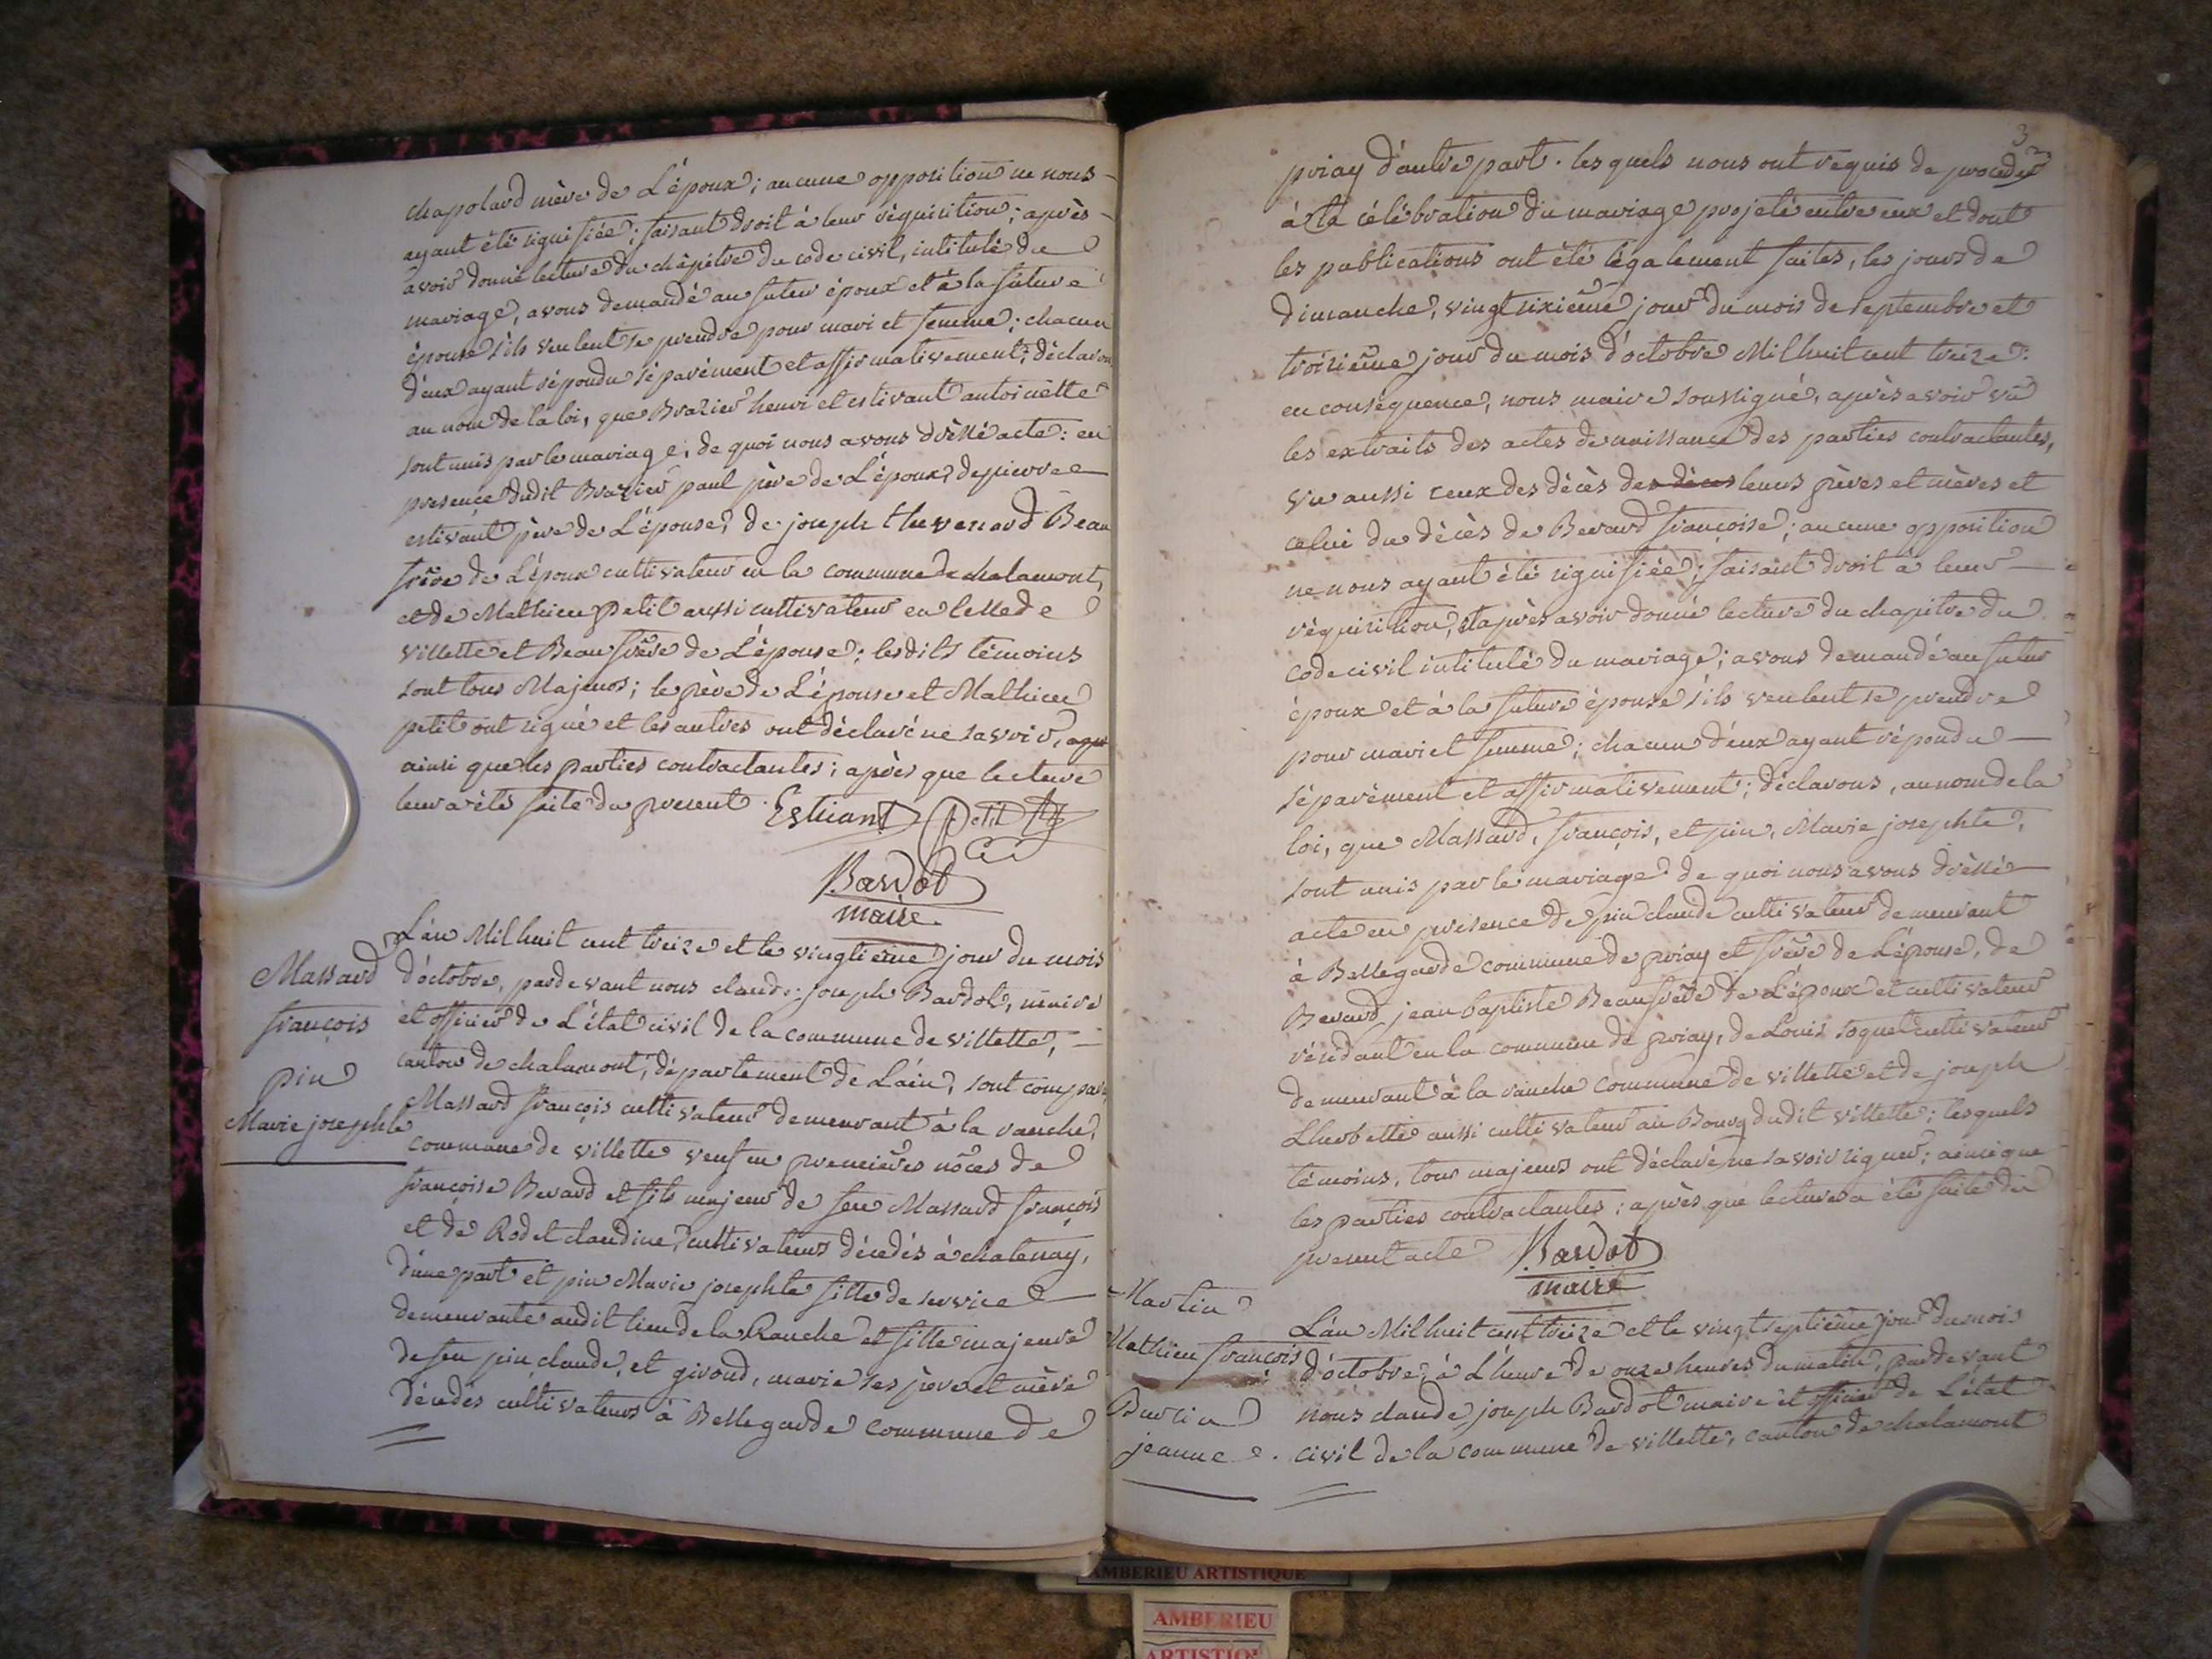 chapolard mère de L'époux; aucune opposition ne nous
ayant été signifiée; faisant droit à leur réquisition; après
avoir donné lecture du chàpitre du code civil, intitulé du
mariage, avons demandé au futur époux et à la future
épouse s'ils veulent se prendre pour mari et femme; chacun
d'eux ayant répondu séparément et affirmativement; déclarons
au nom de la loi, que Brazier henri et estivant antoinette
sont unis par le mariage; de quoi nous avons dréssé acte: en
presence dudit Brazier paul père de L'époux, de pierre
estivant père de L'épouse, de joseph thevenard Beau
frère de L'époux cultivateur en la commune de chalamont,
et de Mathieu petit aussi cultivateur en celle de
villette et Beau frère de L'épouse; les dits témoins
sont tous Majeurs; le père de L'épouse et Mathieu
petit ont signé et les autres ont déclaré ne savoir,
ainsi que les parties contractantes; après que lecture
leur a été faite du present. Estivant Petit
Bardot
maire
L'an Mil huit cent treize et le vingtième jour du mois
Massard d'octobre, pardevant nous claude joseph Bardot, maire
françois et officier de L'état civil de la commune de villette,
canton de chalamont, département de L'ain, sont comparus
pin Massard françois cultivateur demeurant à la ranche,
Marie josephte commune de villette veuf en premières nôces de
françoise Berard et fils majeur de feu Massard françois
et de Rodet claudine, cultivateurs décédés à chatenay,
d'une part et pin Marie josephte fille de service
demeurante audit lieu de la Ranche et fille majeure
de feu pin claude, et giroud, marie ses père et mère
décédés cultivateurs à Bellegarde commune de
3
priay d'autre part. lesquels nous ont requis de proceder
à la célébration du mariage projeté entre eux et dont
les publications ont été légalement faites, les jours de
dimanche, vingt sixième jour du mois de septembre et
troisième jour du mois d'octobre Mil huit cent treize:
en conséquence, nous maire soussigné, après avoir vû
les extraits des actes de naissance des parties contractantes,
vu aussi ceux des décès des décès leurs pères et mères et
celui du décès de Berard françoise; aucune opposition
ne nous ayant été signifiée; faisant droit à leur
réquisition, et après avoir donné lecture du chapitre du
code civil intitulé du mariage; avons demandé au futur
époux et à la future épouse s'ils veulent se prendre
pour mari et femme; chacun d'eux ayant répondu
séparément et affirmativement; déclarons, au nom de la
loi, que Massard, françois, et pin, Marie josephte,
sont unis par le mariage de quoi nous avons dréssé
acte en présence de pin claude cultivateur demeurant
à Bellegarde commune de priay et frère de L'épouse, de
Berard jean baptiste Beaufrère de L'époux et cultivateur
résidant en la commune de priay, de Louis soquet cultivateur
demeurant à la ranche commune de villette et de joseph
Lherbette aussi cultivateur au Bourg dudit villette; lesquels
témoins, tous majeurs ont déclaré ne savoir signer; ainsi que
les parties contractantes; après que lecture a été faite du
present acte Bardot
maire
Martin
L'an Mil huit cent treize et le vingt septième jour du mois
Mathieu françois d'octobre, à L'heure de onze heures du matin, pardevant
Burlin nous claude joseph Bardot maire et officier de L'état
jeanne. civil de la commune de villette, canton de chalamont
AMBERIEU ARTISTIQUE
AMBERIEU
ARTISTIQUE